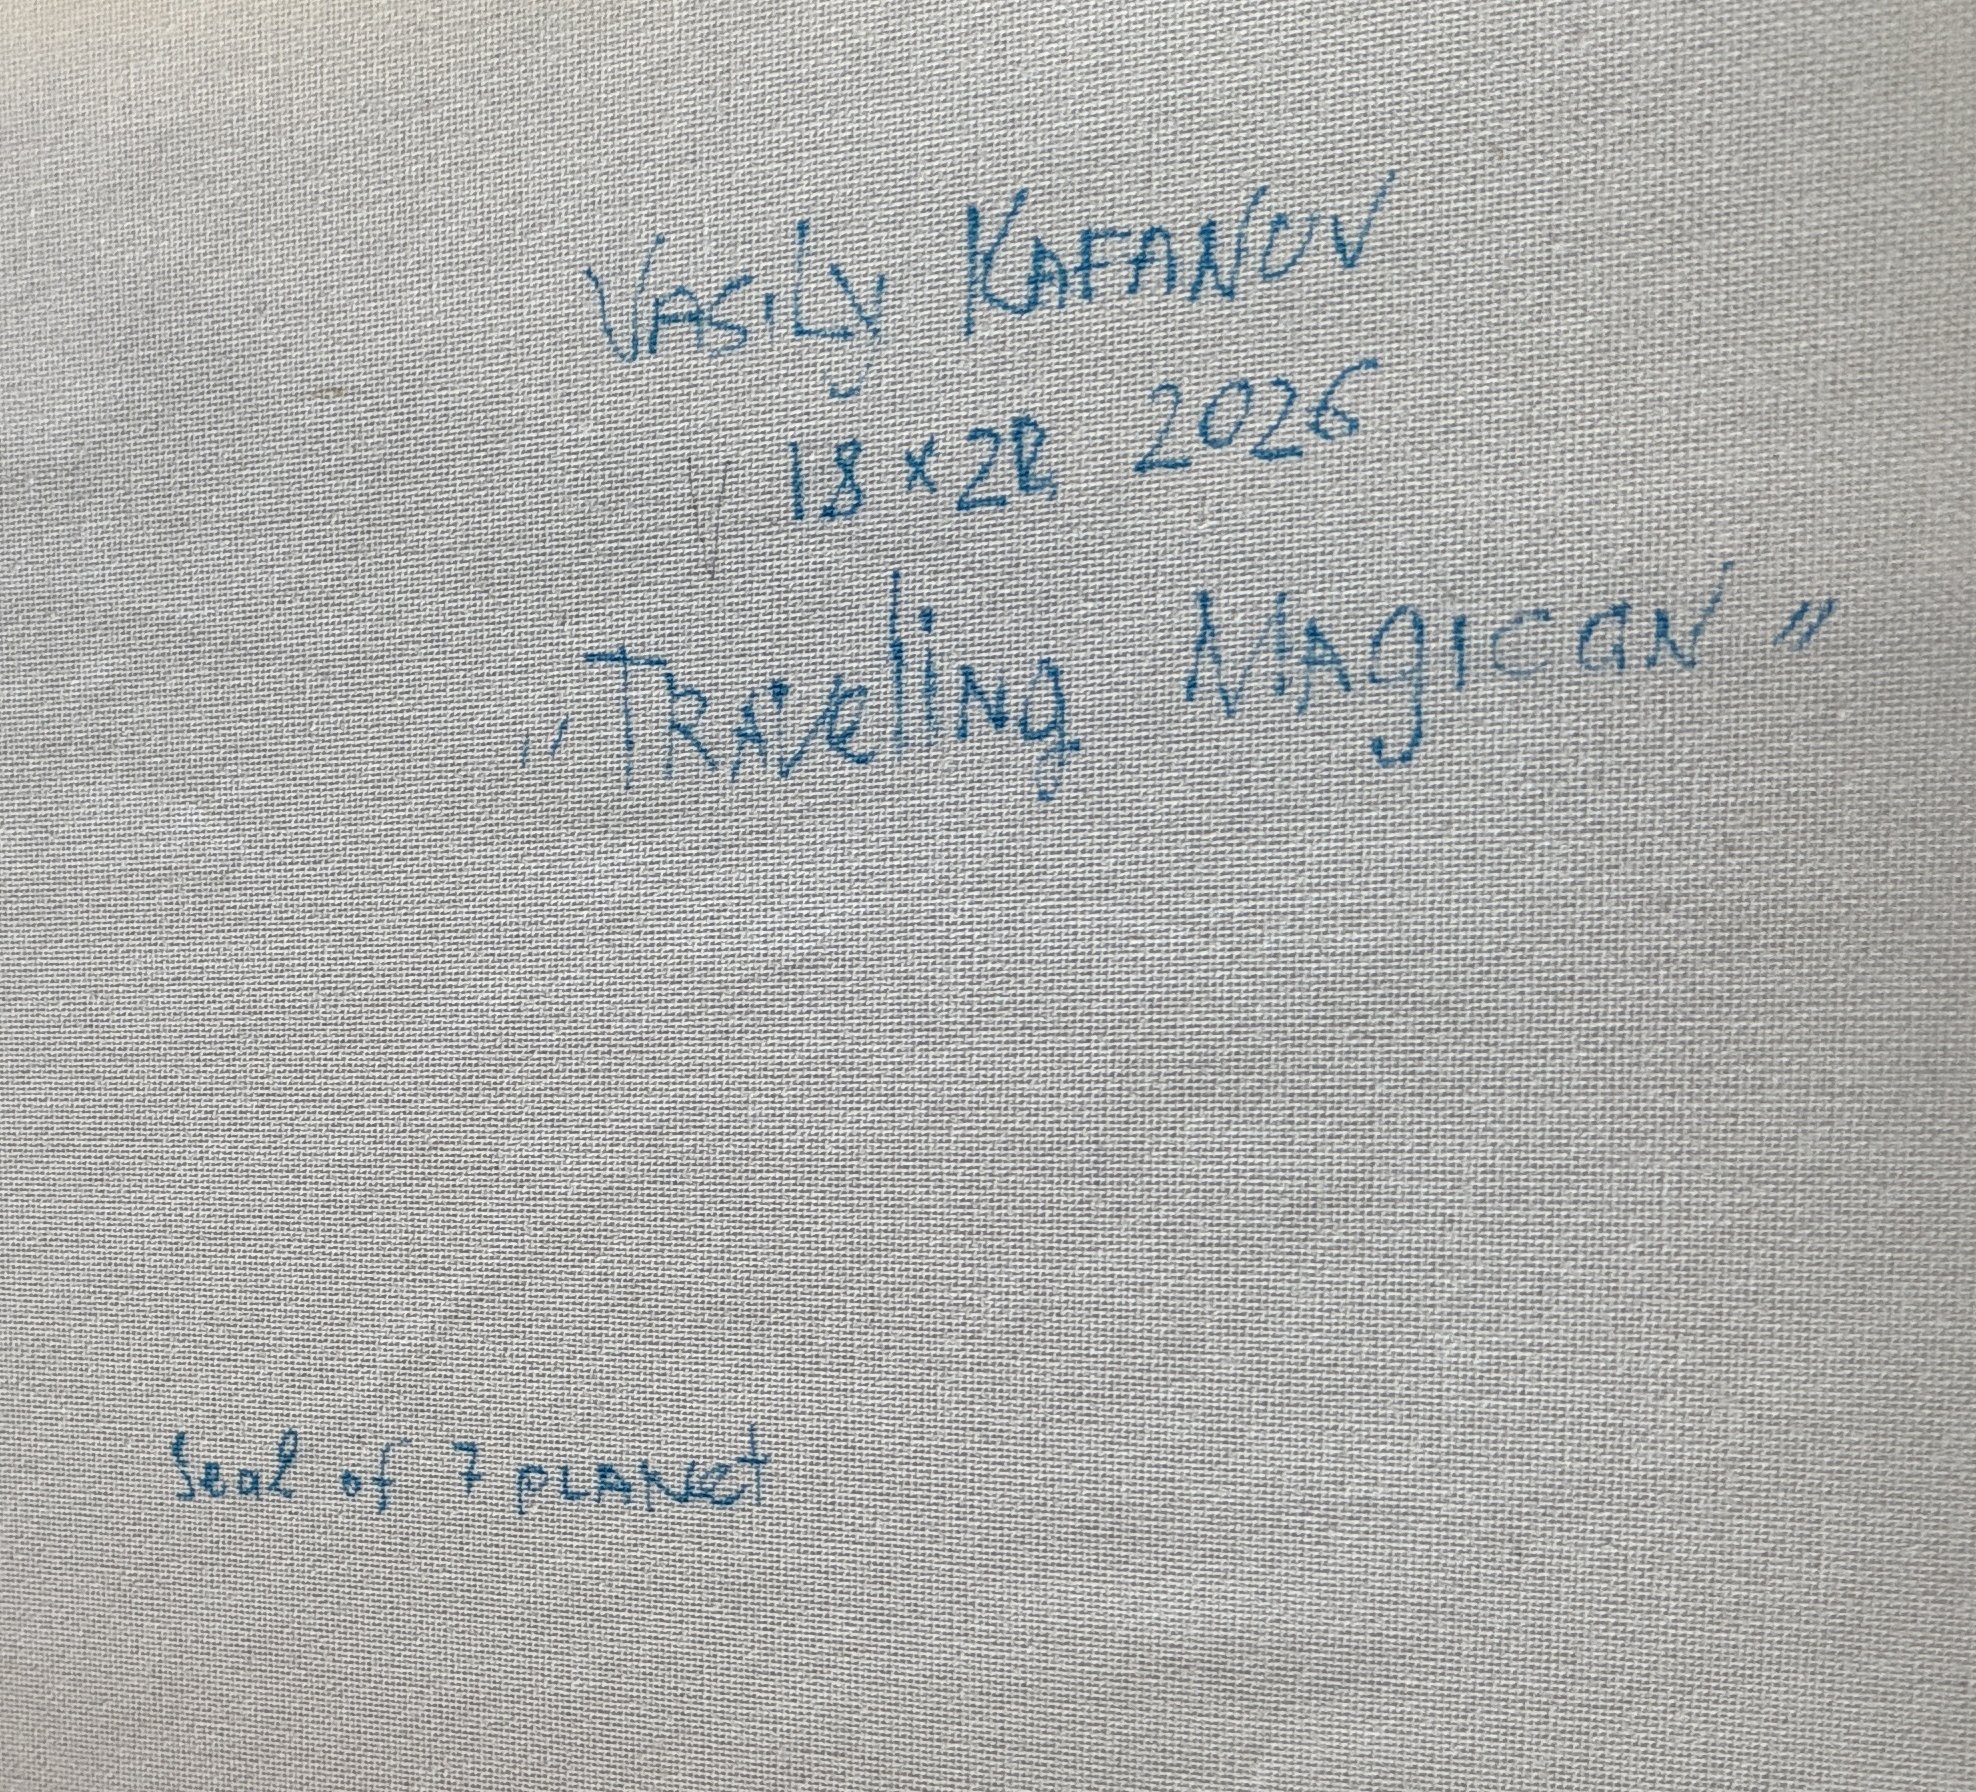 Vasily Kafanov
18 x 22 2026
„Traveling Magican"
Seal of 7 planet